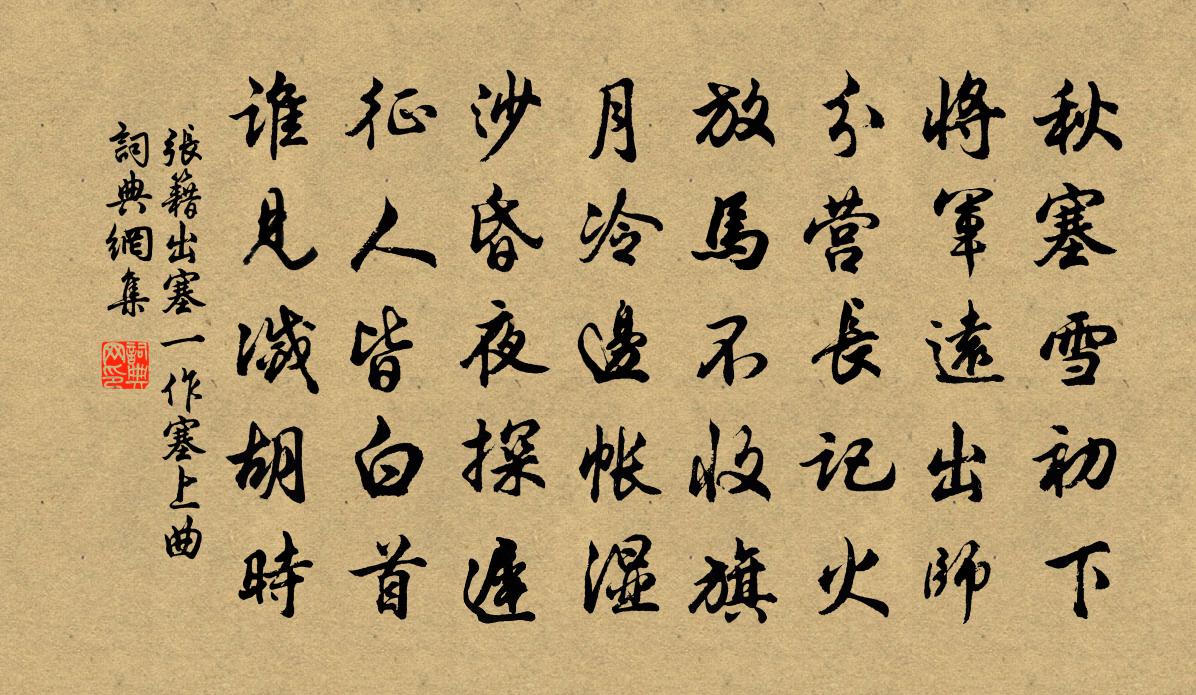 秋塞雪初下
將軍遠出師
分营長记火
放馬不收旗
月冷邊帐湿
沙昏夜探遲
征人皆白首
谁見滅胡時
張籍出塞一作塞上曲
詞典網集
詞典
网印